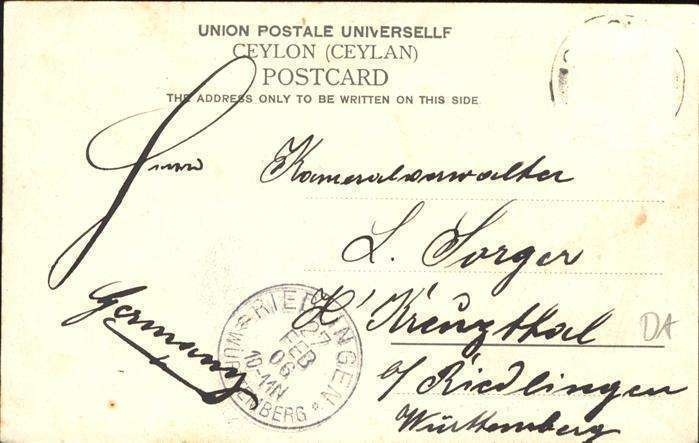 UNION POSTALE UNIVERSELLE
CEYLON (CEYLAN)
POSTCARD
THE ADDRESS ONLY TO BE WRITTEN ON THIS SIDE
Herrn Kameralverwalter
L. Sorger
H' Kreuzthal
a/ Riedlingen
Württemberg
Germany
RIEDLINGEN
27
FEB
06
10-11N
WÜRTTEMBERG
DA